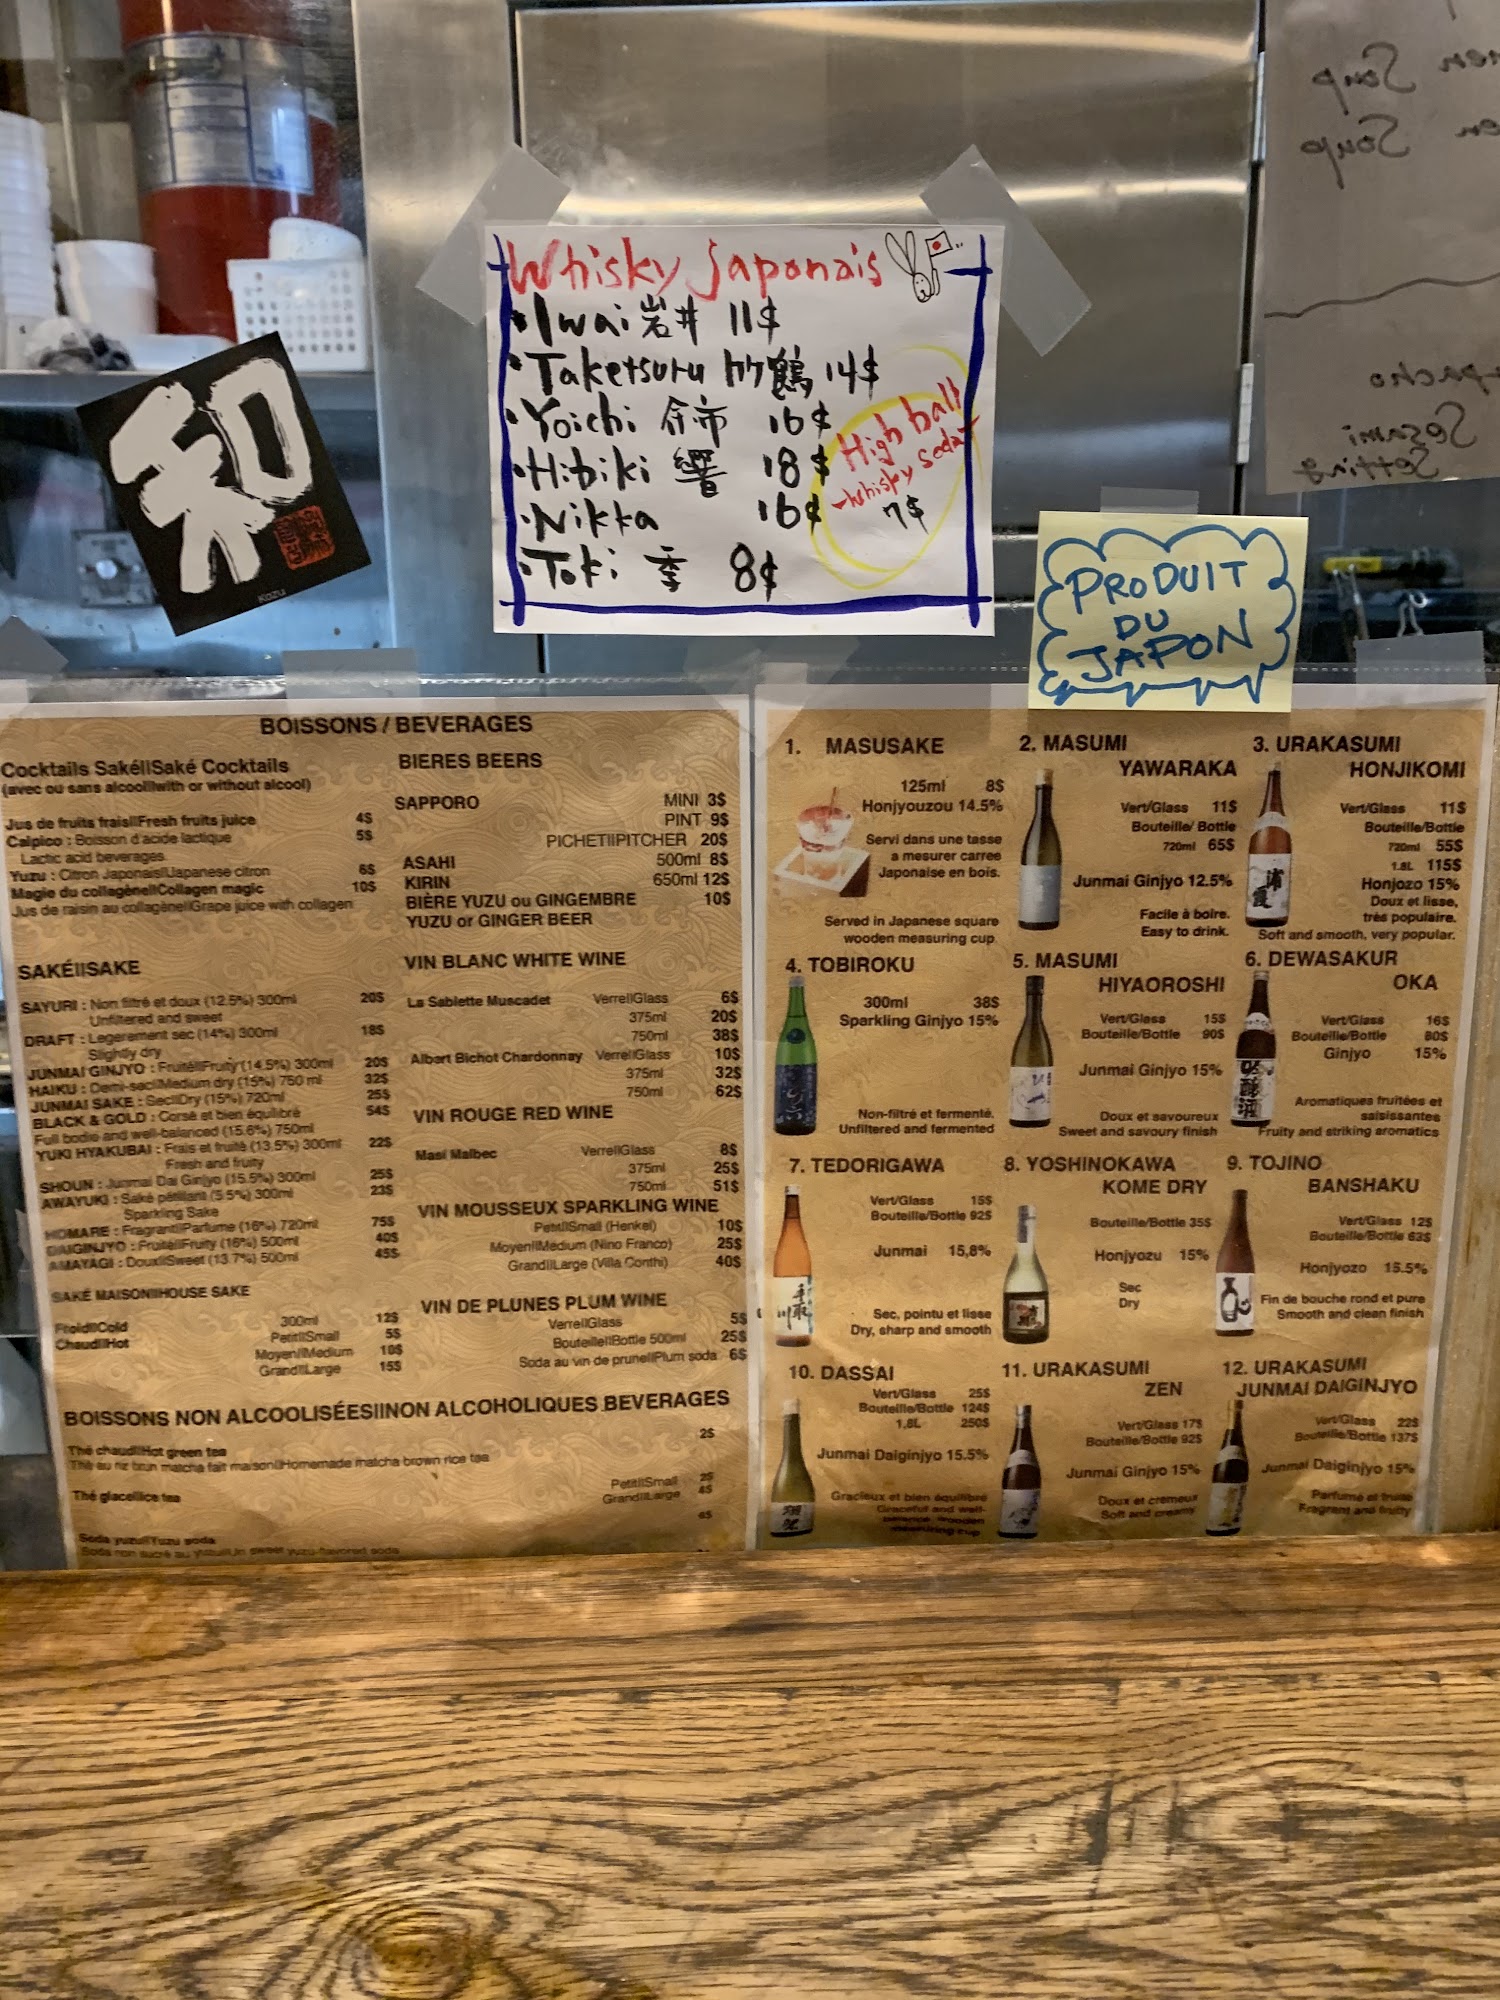 Whisky Japonais
• Iwai 岩井 11$
• Taketsuru 竹鶴 14$
• Yoichi 余市 16$
• Hibiki 響 18$
• Nikka 16$
• Toki 季 8$
High ball
-Whisky soda-
7$
和
Kazu
PRODUIT
DU
JAPON
Soup
Soup
Sesami
Setting
BOISSONS / BEVERAGES
Cocktails Saké||Saké Cocktails
(avec ou sans alcool||with or without alcool)
Jus de fruits frais||Fresh fruits juice 4$
Calpico : Boisson d'acide lactique 5$
Lactic acid beverages
Yuzu : Citron Japonais||Japanese citron 6$
Magie du collagène||Collagen magic 10$
Jus de raisin au collagène||Grape juice with collagen
SAKÉ||SAKE
SAYURI : Non filtré et doux (12.5%) 300ml 20$
Unfiltered and sweet
DRAFT : Legerement sec (14%) 300ml 18$
Slightly dry
JUNMAI GINJYO : Fruité||Fruity (14.5%) 300ml 20$
HAIKU : Demi-sec||Medium dry (15%) 750 ml 32$
JUNMAI SAKE : Sec||Dry (15%) 720ml 25$
BLACK & GOLD : Corsé et bien équilibré 54$
Full bodie and well-balanced (15.6%) 750ml
YUKI HYAKUBAI : Frais et fruité (13.5%) 300ml 22$
Fresh and fruity
SHOUN : Junmai Dai Ginjyo (15.5%) 300ml 25$
AWAYUKI : Saké pétillant (5.5%) 300ml 23$
Sparkling Sake
HOMARE : Fragrant||Parfume (16%) 720ml 75$
DAIGINJYO : Fruité||Fruity (16%) 500ml 40$
AMAYAGI : Doux||Sweet (13.7%) 500ml 45$
SAKÉ MAISON||HOUSE SAKE
Froid||Cold 300ml 12$
Chaud||Hot Petit||Small 5$
Moyen||Medium 10$
Grand||Large 15$
BIERES BEERS
SAPPORO MINI 3$
PINT 9$
PICHET||PITCHER 20$
ASAHI 500ml 8$
KIRIN 650ml 12$
BIÈRE YUZU ou GINGEMBRE 10$
YUZU or GINGER BEER
VIN BLANC WHITE WINE
La Sablette Muscadet Verre||Glass 6$
375ml 20$
750ml 38$
Albert Bichot Chardonnay Verre||Glass 10$
375ml 32$
750ml 62$
VIN ROUGE RED WINE
Masi Malbec Verre||Glass 8$
375ml 25$
750ml 51$
VIN MOUSSEUX SPARKLING WINE
Petit||Small (Henkel) 10$
Moyen||Medium (Nino Franco) 25$
Grand||Large (Villa Conthi) 40$
VIN DE PLUNES PLUM WINE
Verre||Glass 5$
Bouteille||Bottle 500ml 25$
Soda au vin de prune||Plum soda 6$
BOISSONS NON ALCOOLISÉES||NON ALCOHOLIQUES BEVERAGES
Thé chaud||Hot green tea 2$
Thé au riz brun matcha fait maison||Homemade matcha brown rice tea
Thé glace||Ice tea Petit||Small 2$
Grand||Large 4$
Soda yuzu||Yuzu soda 6$
1. MASUSAKE
125ml 8$
Honjyouzou 14.5%
Servi dans une tasse
a mesurer carree
Japonaise en bois.
Served in Japanese square
wooden measuring cup
2. MASUMI
YAWARAKA
Vert/Glass 11$
Bouteille/ Bottle
720ml 65$
Junmai Ginjyo 12.5%
Facile à boire.
Easy to drink.
3. URAKASUMI
HONJIKOMI
Vert/Glass 11$
Bouteille/Bottle
720ml 55$
1.8L 115$
Honjozo 15%
Doux et lisse,
très populaire.
Soft and smooth, very popular.
4. TOBIROKU
300ml 38$
Sparkling Ginjyo 15%
Non-filtré et fermenté.
Unfiltered and fermented
5. MASUMI
HIYAOROSHI
Vert/Glass 15$
Bouteille/Bottle 90$
Junmai Ginjyo 15%
Doux et savoureux
Sweet and savoury finish
6. DEWASAKUR
OKA
Vert/Glass 16$
Bouteille/Bottle 80$
Ginjyo 15%
Aromatiques fruitées et
saisissantes
Fruity and striking aromatics
7. TEDORIGAWA
Vert/Glass 15$
Bouteille/Bottle 92$
Junmai 15,8%
Sec, pointu et lisse
Dry, sharp and smooth
8. YOSHINOKAWA
KOME DRY
Bouteille/Bottle 35$
Honjyozu 15%
Sec
Dry
9. TOJINO
BANSHAKU
Vert/Glass 12$
Bouteille/Bottle 63$
Honjyozo 15.5%
Fin de bouche rond et pure
Smooth and clean finish
10. DASSAI
Vert/Glass 25$
Bouteille/Bottle 124$
1,8L 250$
Junmai Daiginjyo 15.5%
Gracieux et bien équilibré
Graceful and well-
balance, wooden
measuring cup
11. URAKASUMI
ZEN
Vert/Glass 17$
Bouteille/Bottle 92$
Junmai Ginjyo 15%
Doux et crémeux
Soft and creamy
12. URAKASUMI
JUNMAI DAIGINJYO
Vert/Glass 22$
Bouteille/Bottle 137$
Junmai Daiginjyo 15%
Parfumé et fruité
Fragrant and fruity